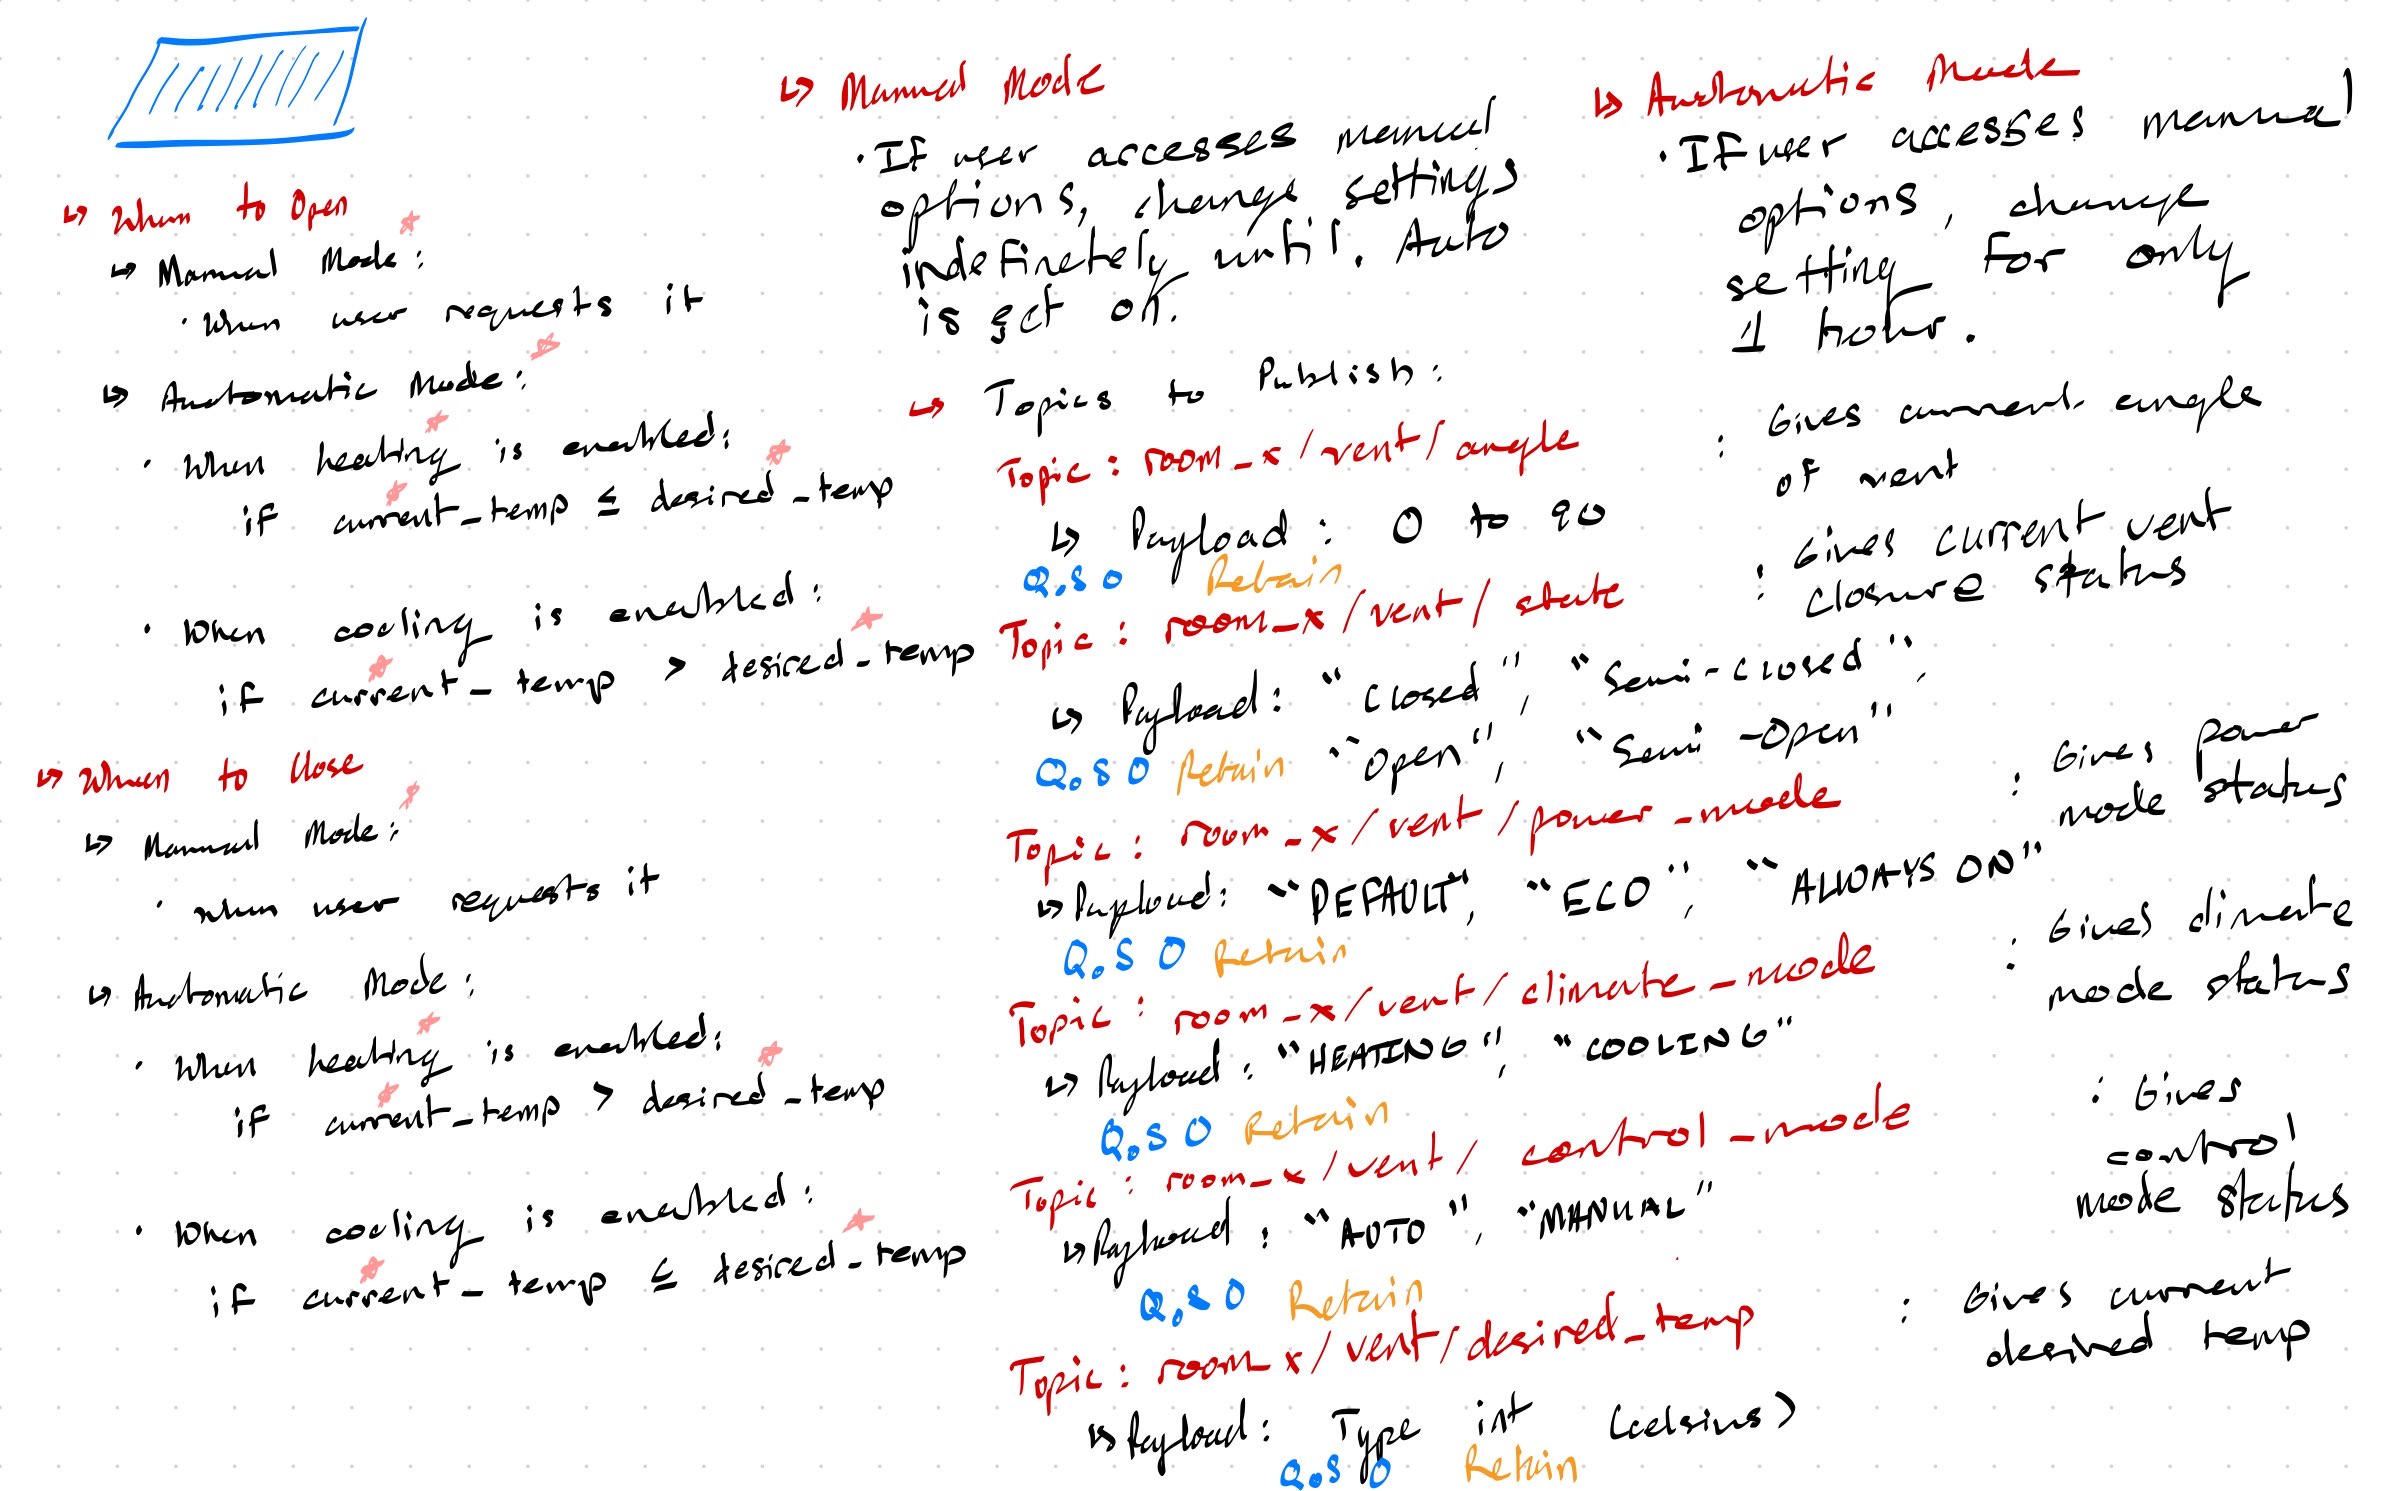 ↳ When to Open
↳ Manual Mode:
· When user requests it
↳ Automatic Mode:
· When heating is enabled:
if current_temp ≤ desired_temp
· When cooling is enabled:
if current_temp > desired_temp
↳ When to Close
↳ Manual Mode:
· When user requests it
↳ Automatic Mode:
· When heating is enabled:
if current_temp > desired_temp
· When cooling is enabled:
if current_temp ≤ desired_temp
↳ Manual Mode
· If user accesses manual
options, change settings
indefinetely until. Auto
is set on.
↳ Automatic Mode
· If user accesses manual
options, change
setting for only
1 hour.
↳ Topics to Publish:
Topic: room_x/vent/angle
: Gives current angle
of vent
↳ Payload: 0 to 90
QoS 0 Retain
Topic: room_x/vent/state
: Gives current vent
closure status
↳ Payload: "Closed", "Semi-closed",
"Open", "Semi-Open"
QoS 0 Retain
Topic: room_x/vent/power_mode
: Gives power
mode status
↳ Payload: "DEFAULT", "ECO", "ALWAYS ON"
QoS 0 Retain
Topic: room_x/vent/climate_mode
: Gives climate
mode status
↳ Payload: "HEATING", "COOLING"
QoS 0 Retain
Topic: room_x/vent/control_mode
: Gives
control
mode status
↳ Payload: "AUTO", "MANUAL"
QoS 0 Retain
Topic: room_x/vent/desired_temp
: Gives current
desired temp
↳ Payload: Type int (celsius)
QoS 0 Retain